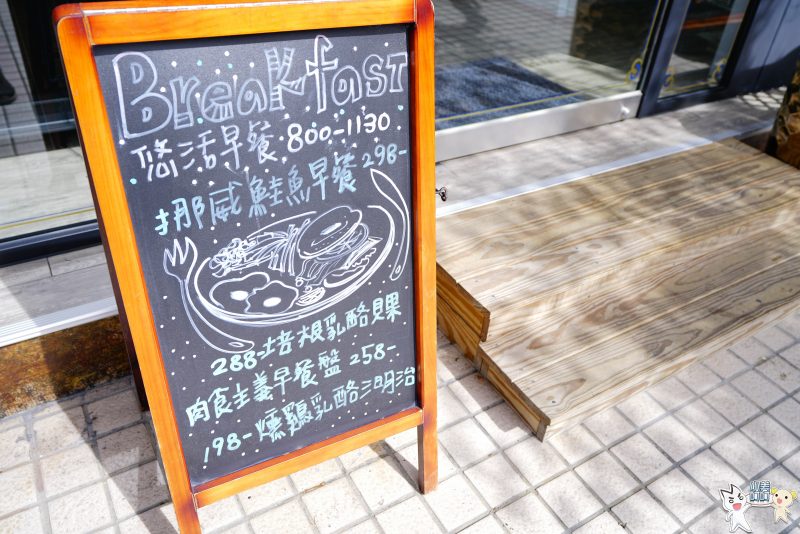 Breakfast
悠活早餐 800-1130
挪威鮭魚早餐 298-
288-培根乳酪貝果
肉食主義早餐盤 258-
198-燻鷄乳酪三明治